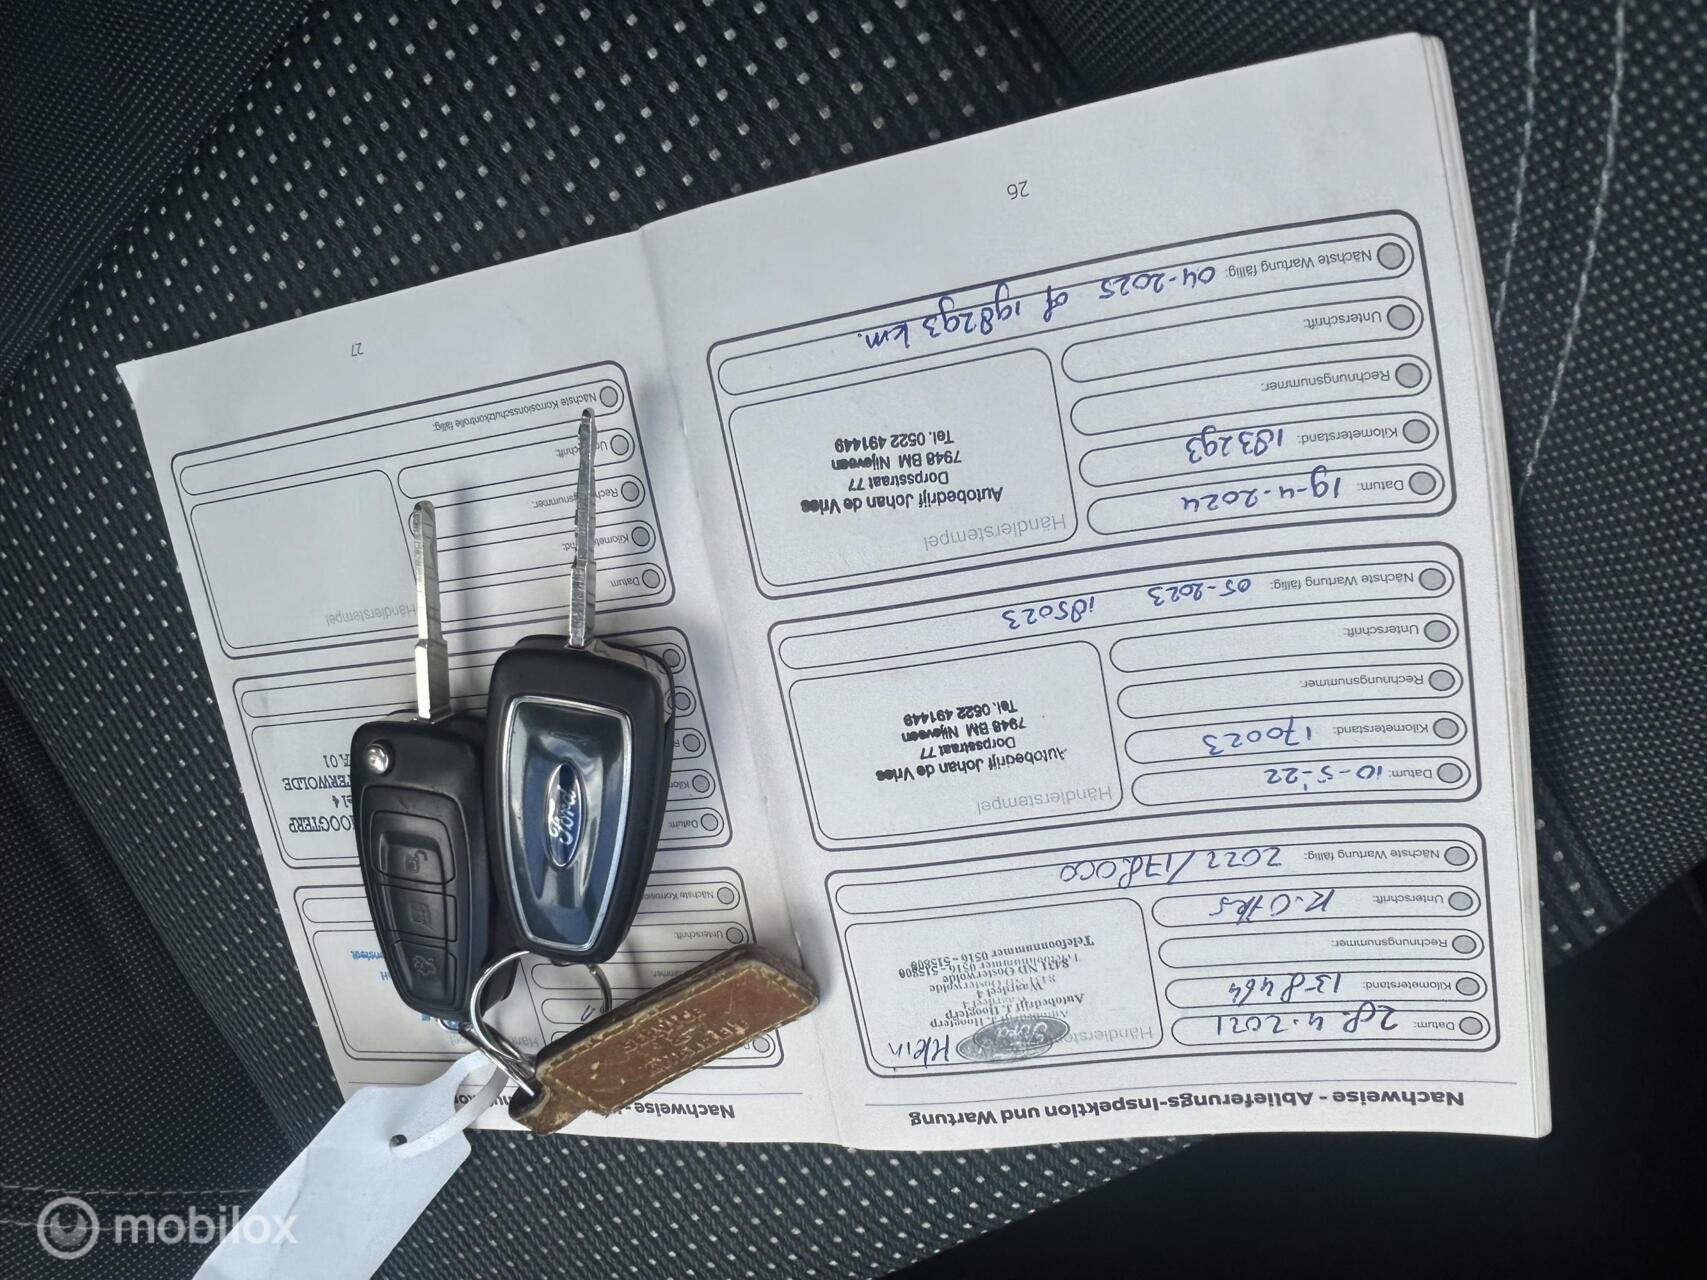 Nachweise - Ablieferungs-Inspektion und Wartung
Datum: 28.4.2021
Kilometerstand: 138464
Rechnungsnummer:
Unterschrift:
Nächste Wartung fällig: 2022/178.000
Händlerstempel
Klein
Ford
Autobedrijf J. J. Hoogterp
Warmteel 4
8431 ND Oosterwolde
Telefoonnummer 0516-515800
Datum: 10-5-'22
Kilometerstand: 170023
Rechnungsnummer:
Unterschrift:
Nächste Wartung fällig: 05-2023 185023
Händlerstempel
Autobedrijf Johan de Vries
Dorpsstraat 77
7948 BM Nijeveen
Tel. 0522 491449
Datum: 19-4-2024
Kilometerstand: 183293
Rechnungsnummer:
Unterschrift:
Nächste Wartung fällig: 04-2025 of 198293 km.
Händlerstempel
Autobedrijf Johan de Vries
Dorpsstraat 77
7948 BM Nijeveen
Tel. 0522 491449
26
Nachweise -
Unterschrift:
Datum:
OOGTERP
Händlerstempel
Datum:
Nächste Korrosionsschutzkontrolle fällig:
27
Ford
mobilox